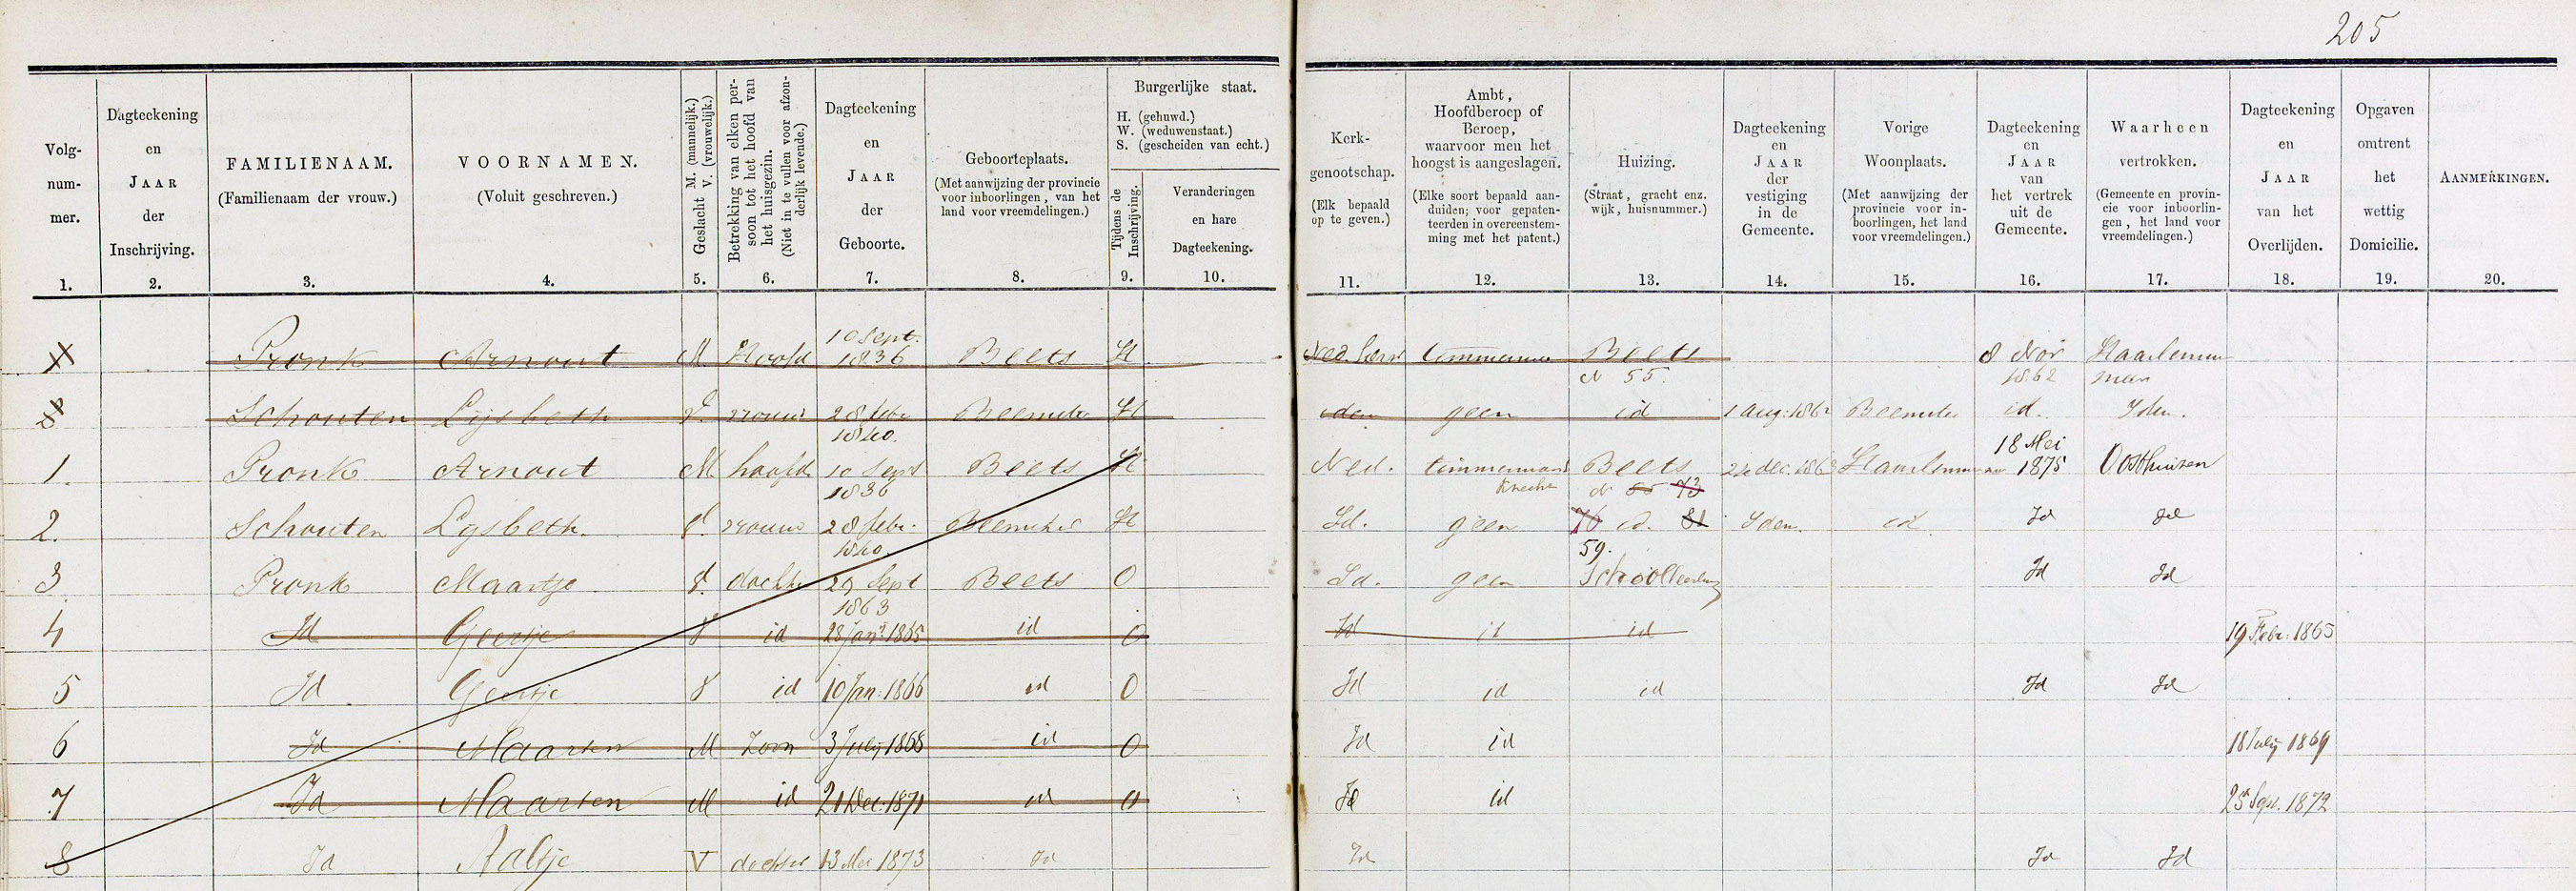 205
Volg-
num-
mer.
1.
Dagteekening
en
JAAR
der
Inschrijving.
2.
FAMILIENAAM.
(Familienaam der vrouw.)
3.
VOORNAMEN.
(Voluit geschreven.)
4.
Geslacht M. (mannelijk.)
V. (vrouwelijk.)
5.
Betrekking van elken per-
soon tot het hoofd van
het huisgezin.
(Niet in te vullen voor afzon-
derlijk levende.)
6.
Dagteekening
en
JAAR
der
Geboorte.
7.
Geboorteplaats.
(Met aanwijzing der provincie
voor inboorlingen, van het
land voor vreemdelingen.)
8.
Burgerlijke staat.
H. (gehuwd.)
W. (weduwenstaat.)
S. (gescheiden van echt.)
Tijdens de
Inschrijving.
9.
Veranderingen
en hare
Dagteekening.
10.
Kerk-
genootschap.
(Elk bepaald
op te geven.)
11.
Ambt,
Hoofdberoep of
Beroep,
waarvoor men het
hoogst is aangeslagen.
(Elke soort bepaald aan-
duiden; voor gepaten-
teerden in overeenstem-
ming met het patent.)
12.
Huizing.
(Straat, gracht enz.
wijk, huisnummer.)
13.
Dagteekening
en
JAAR
der
vestiging
in de
Gemeente.
14.
Vorige
Woonplaats.
(Met aanwijzing der
provincie voor in-
boorlingen, het land
voor vreemdelingen.)
15.
Dagteekening
en
JAAR
van
het vertrek
uit de
Gemeente.
16.
Waarheen
vertrokken.
(Gemeente en provin-
cie voor inboorlin-
gen, het land voor
vreemdelingen.)
17.
Dagteekening
en
JAAR
van het
Overlijden.
18.
Opgaven
omtrent
het
wettig
Domicilie.
19.
AANMERKINGEN.
20.
Pronk Arnout M. Hoofd 10 Sept. 1836 Beets H Ned. herv timmerman Beets N 55. 8 Nov 1862 Haarlemmer meer
Schouten Lijsbeth V. vrouw 28 febr 1840. Beemster H idem geen id 1 Aug: 1862 Beemster id. Idem.
1. Pronk Arnout M. hoofd 10 Sept 1836 Beets H Ned. timmermans knecht Beets N 73 22 dec. Haarlemmer 18 Mei 1875 Oosthuizen
2. Schouten Lijsbeth. V. vrouw 28 febr. 1840. Beemster H Id. geen 76 id. 81 59. Idem. id Id Id
3 Pronk Maartje V. dochter 29 Sept 1863 Beets O Id. geen Schoolleerling Id Id
4 Id Geertje V id 28 Janr. 1865 id O Id id id 19 Febr: 1865
5 Id Geertje V id 10 Jan: 1866 id O Id id id Id Id
6 Id Maarten M Zoon 3 July 1868 id O Id id 18 July 1869
7 Id Maarten M id 21 Dec. 1871 id O Id id 25 Sept. 1872
8 Id Aaltje V dochter 13 Mei 1873 Id Id Id Id